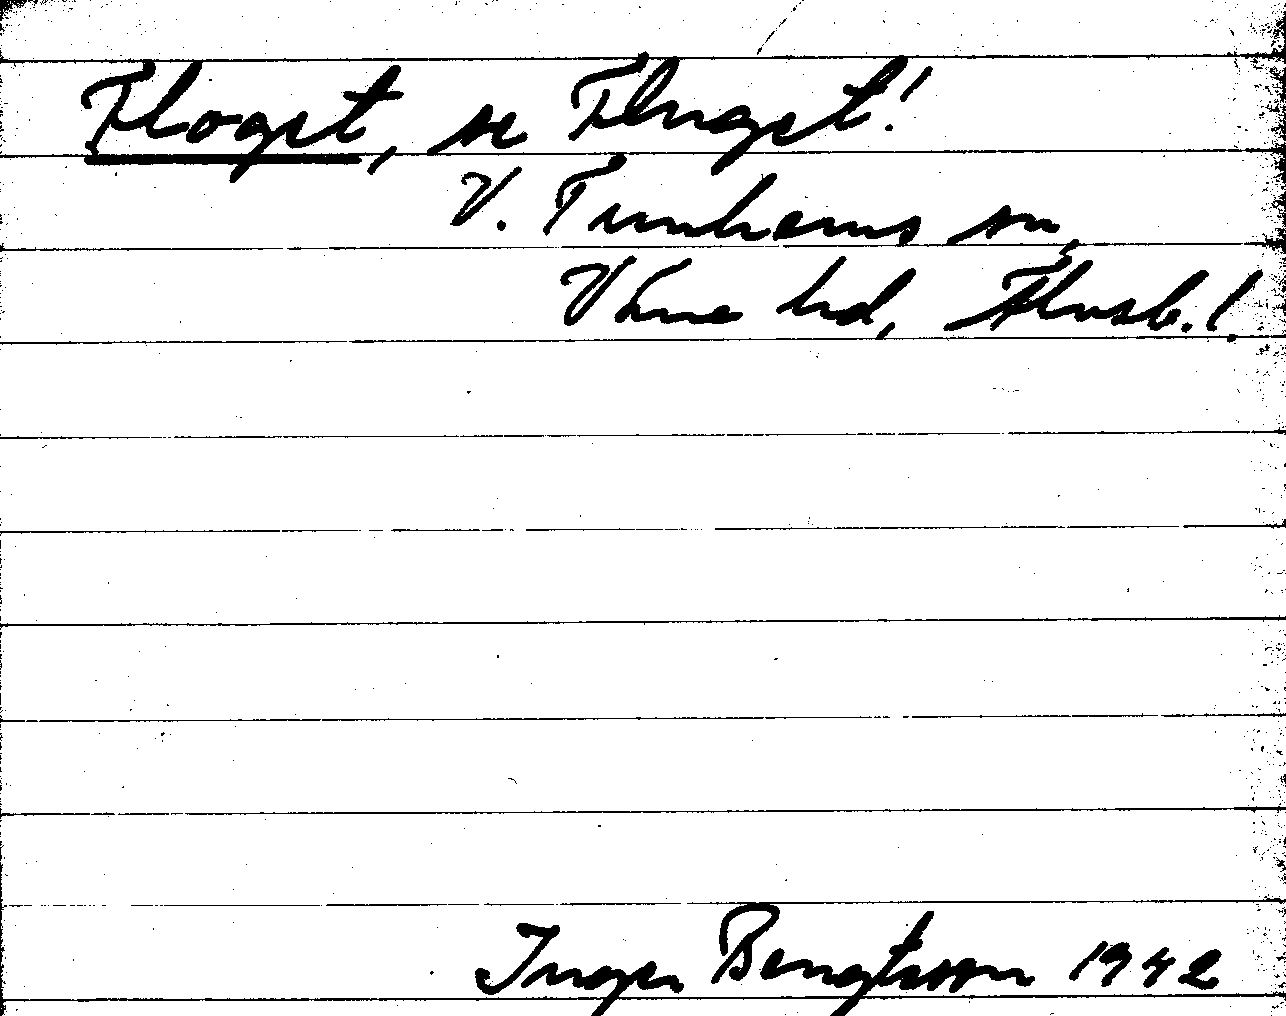 Floget, se Fluget!
V. Tunhems sn,
Väne hd, Älvsb. l.
Inger Bengtsson 1942